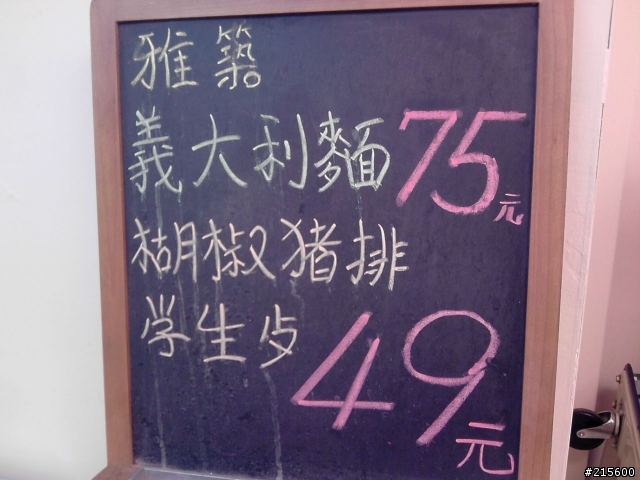 雅築
義大利麵75元
胡椒猪排
学生歺49元
#215600